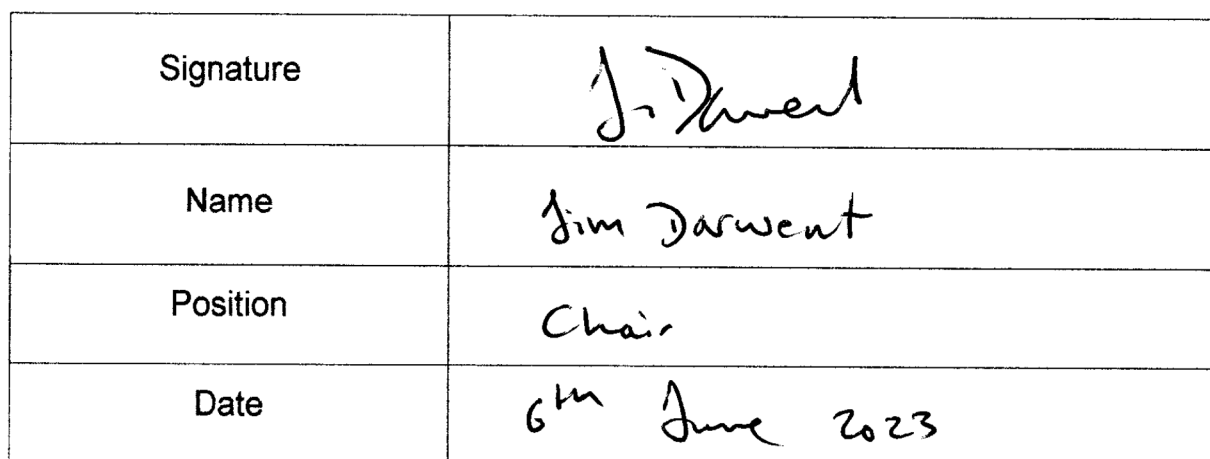 Signature J. Darwent
Name Jim Darwent
Position Chair
Date 6th June 2023